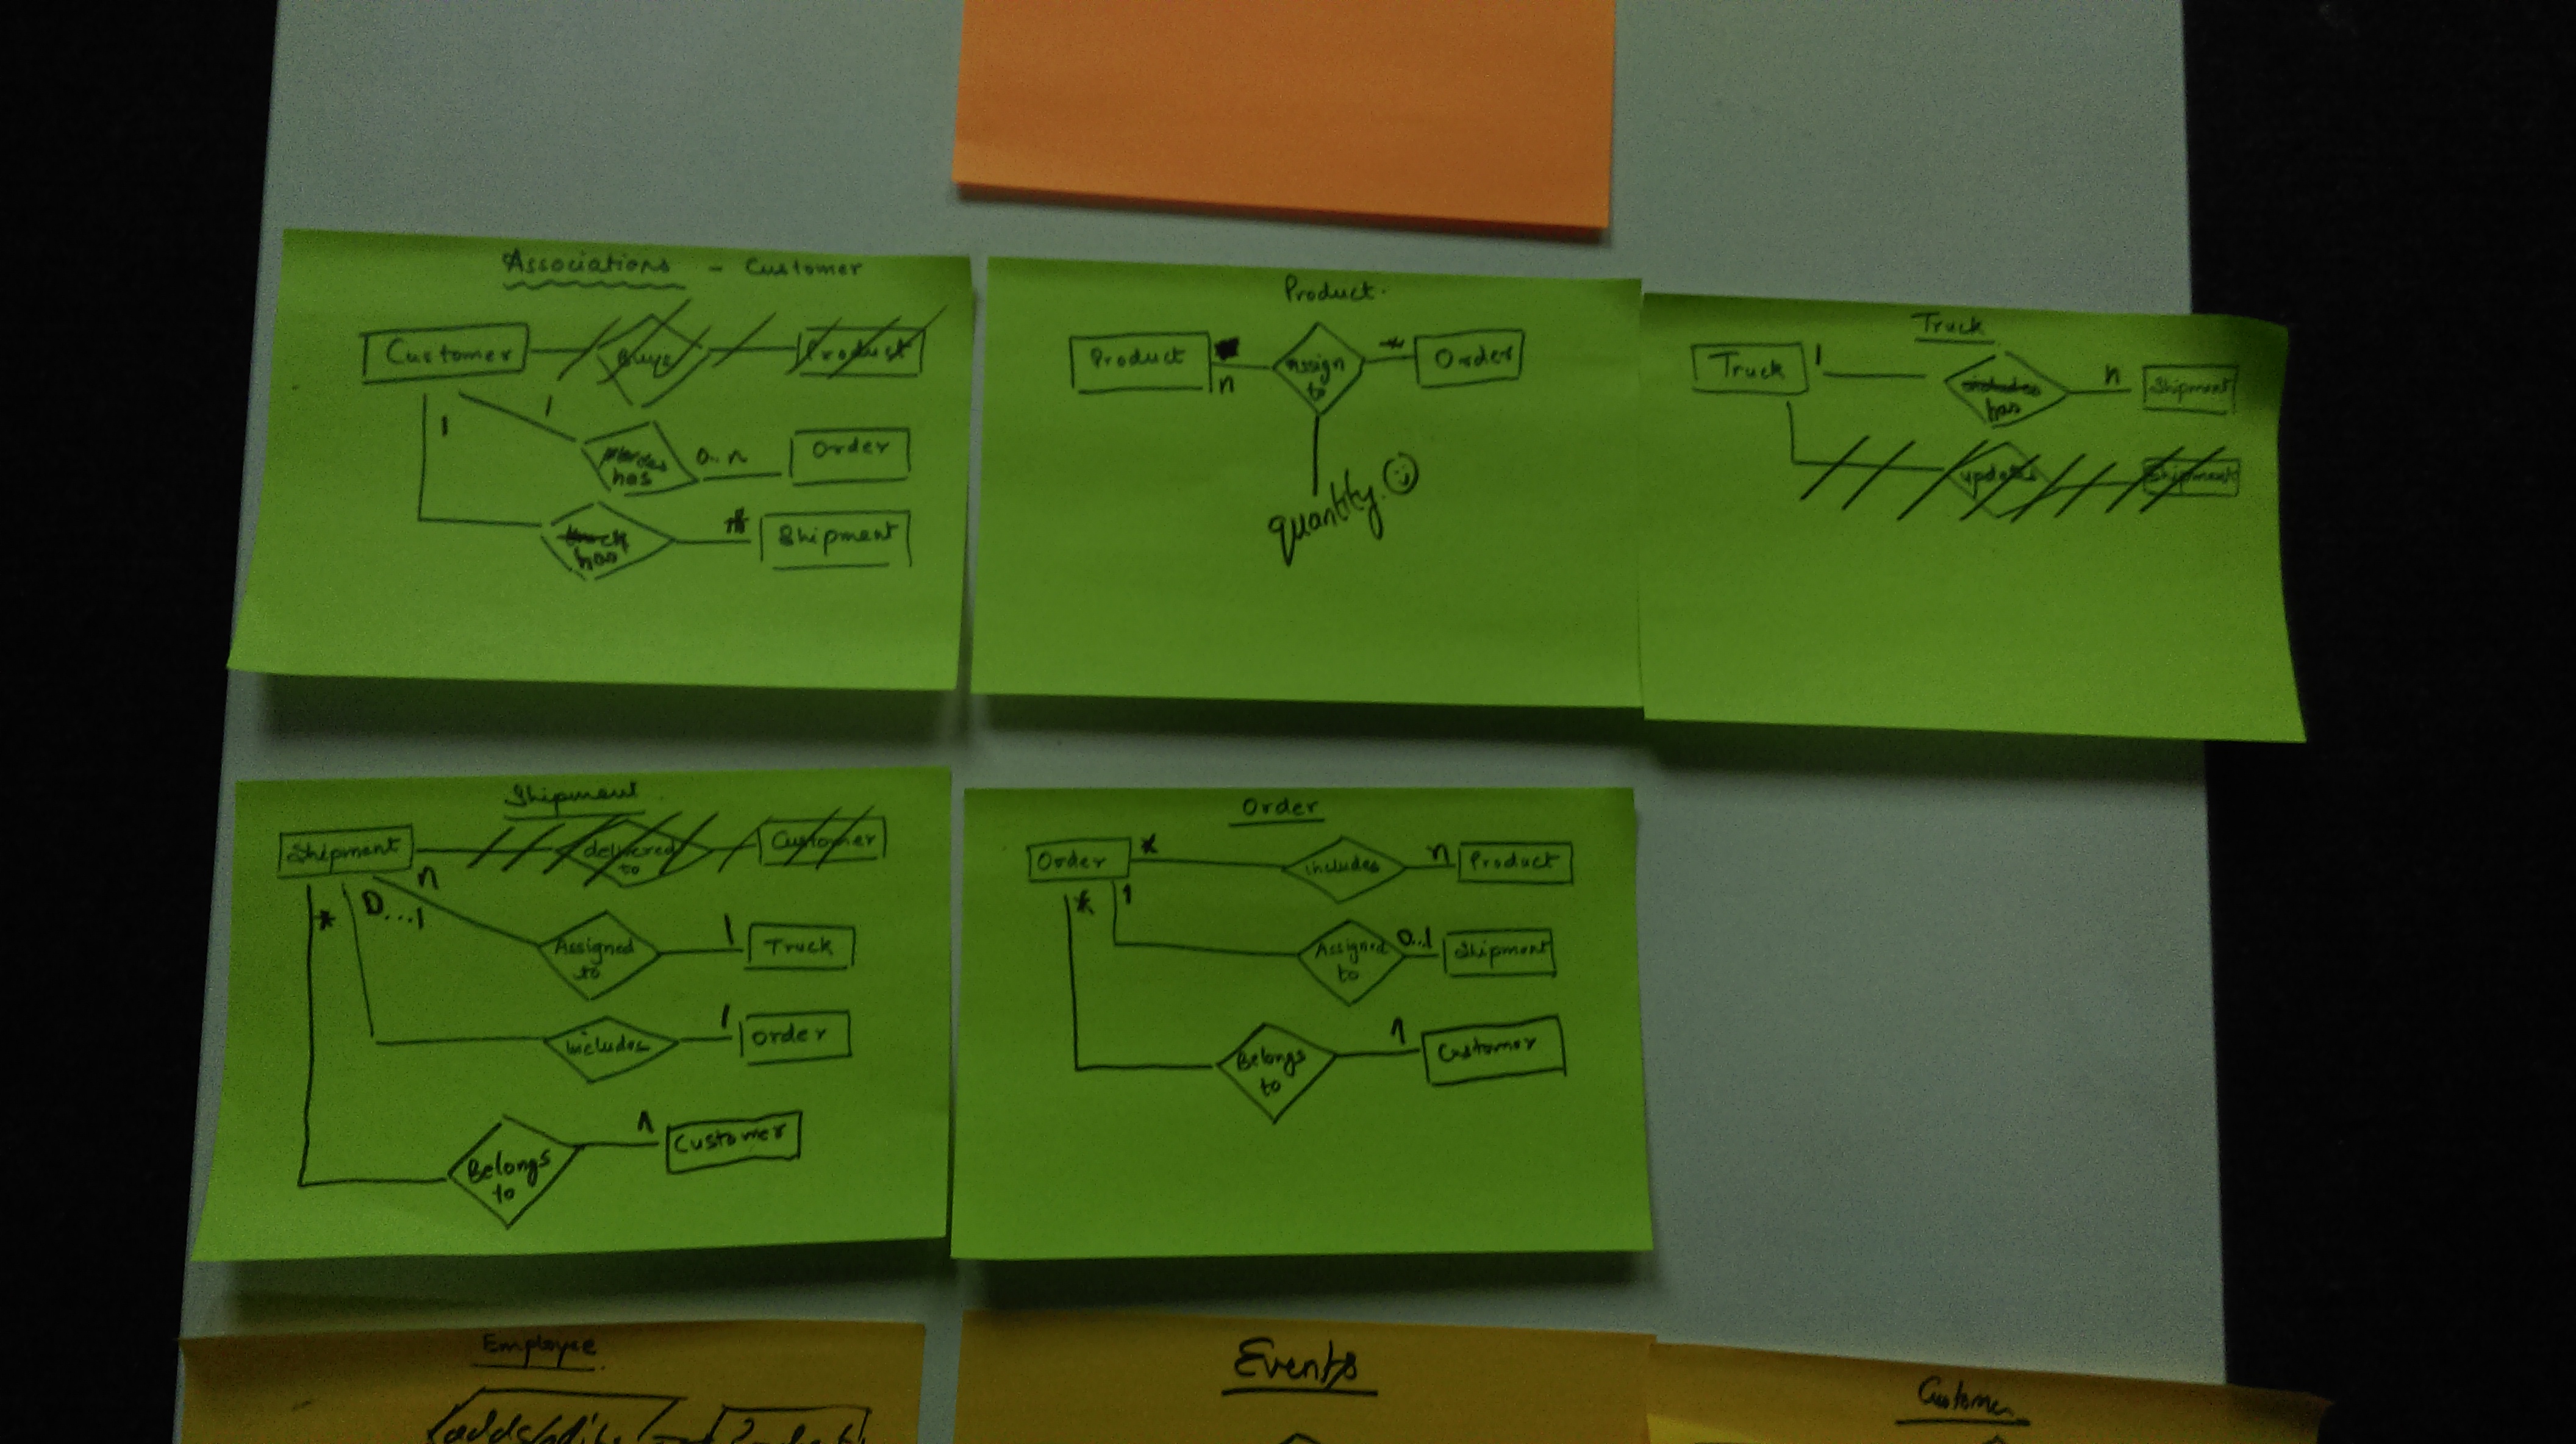 Associations - Customer
Customer
1
Buys
Product
1
has
0..n
Order
has
*
Shipment
Product.
Product
n
Assign
to
*
Order
quantity. ☺
Truck
Truck
1
includes
has
n
Shipment
updates
Shipment
Shipment
Shipment
delivered
to
Customer
n
Assigned
to
1
Truck
0...1
includes
1
Order
*
Belongs
to
1
Customer
Order
Order
*
includes
n
Product
1
Assigned
to
0..1
Shipment
*
Belongs
to
1
Customer
Employee
Events
Customer